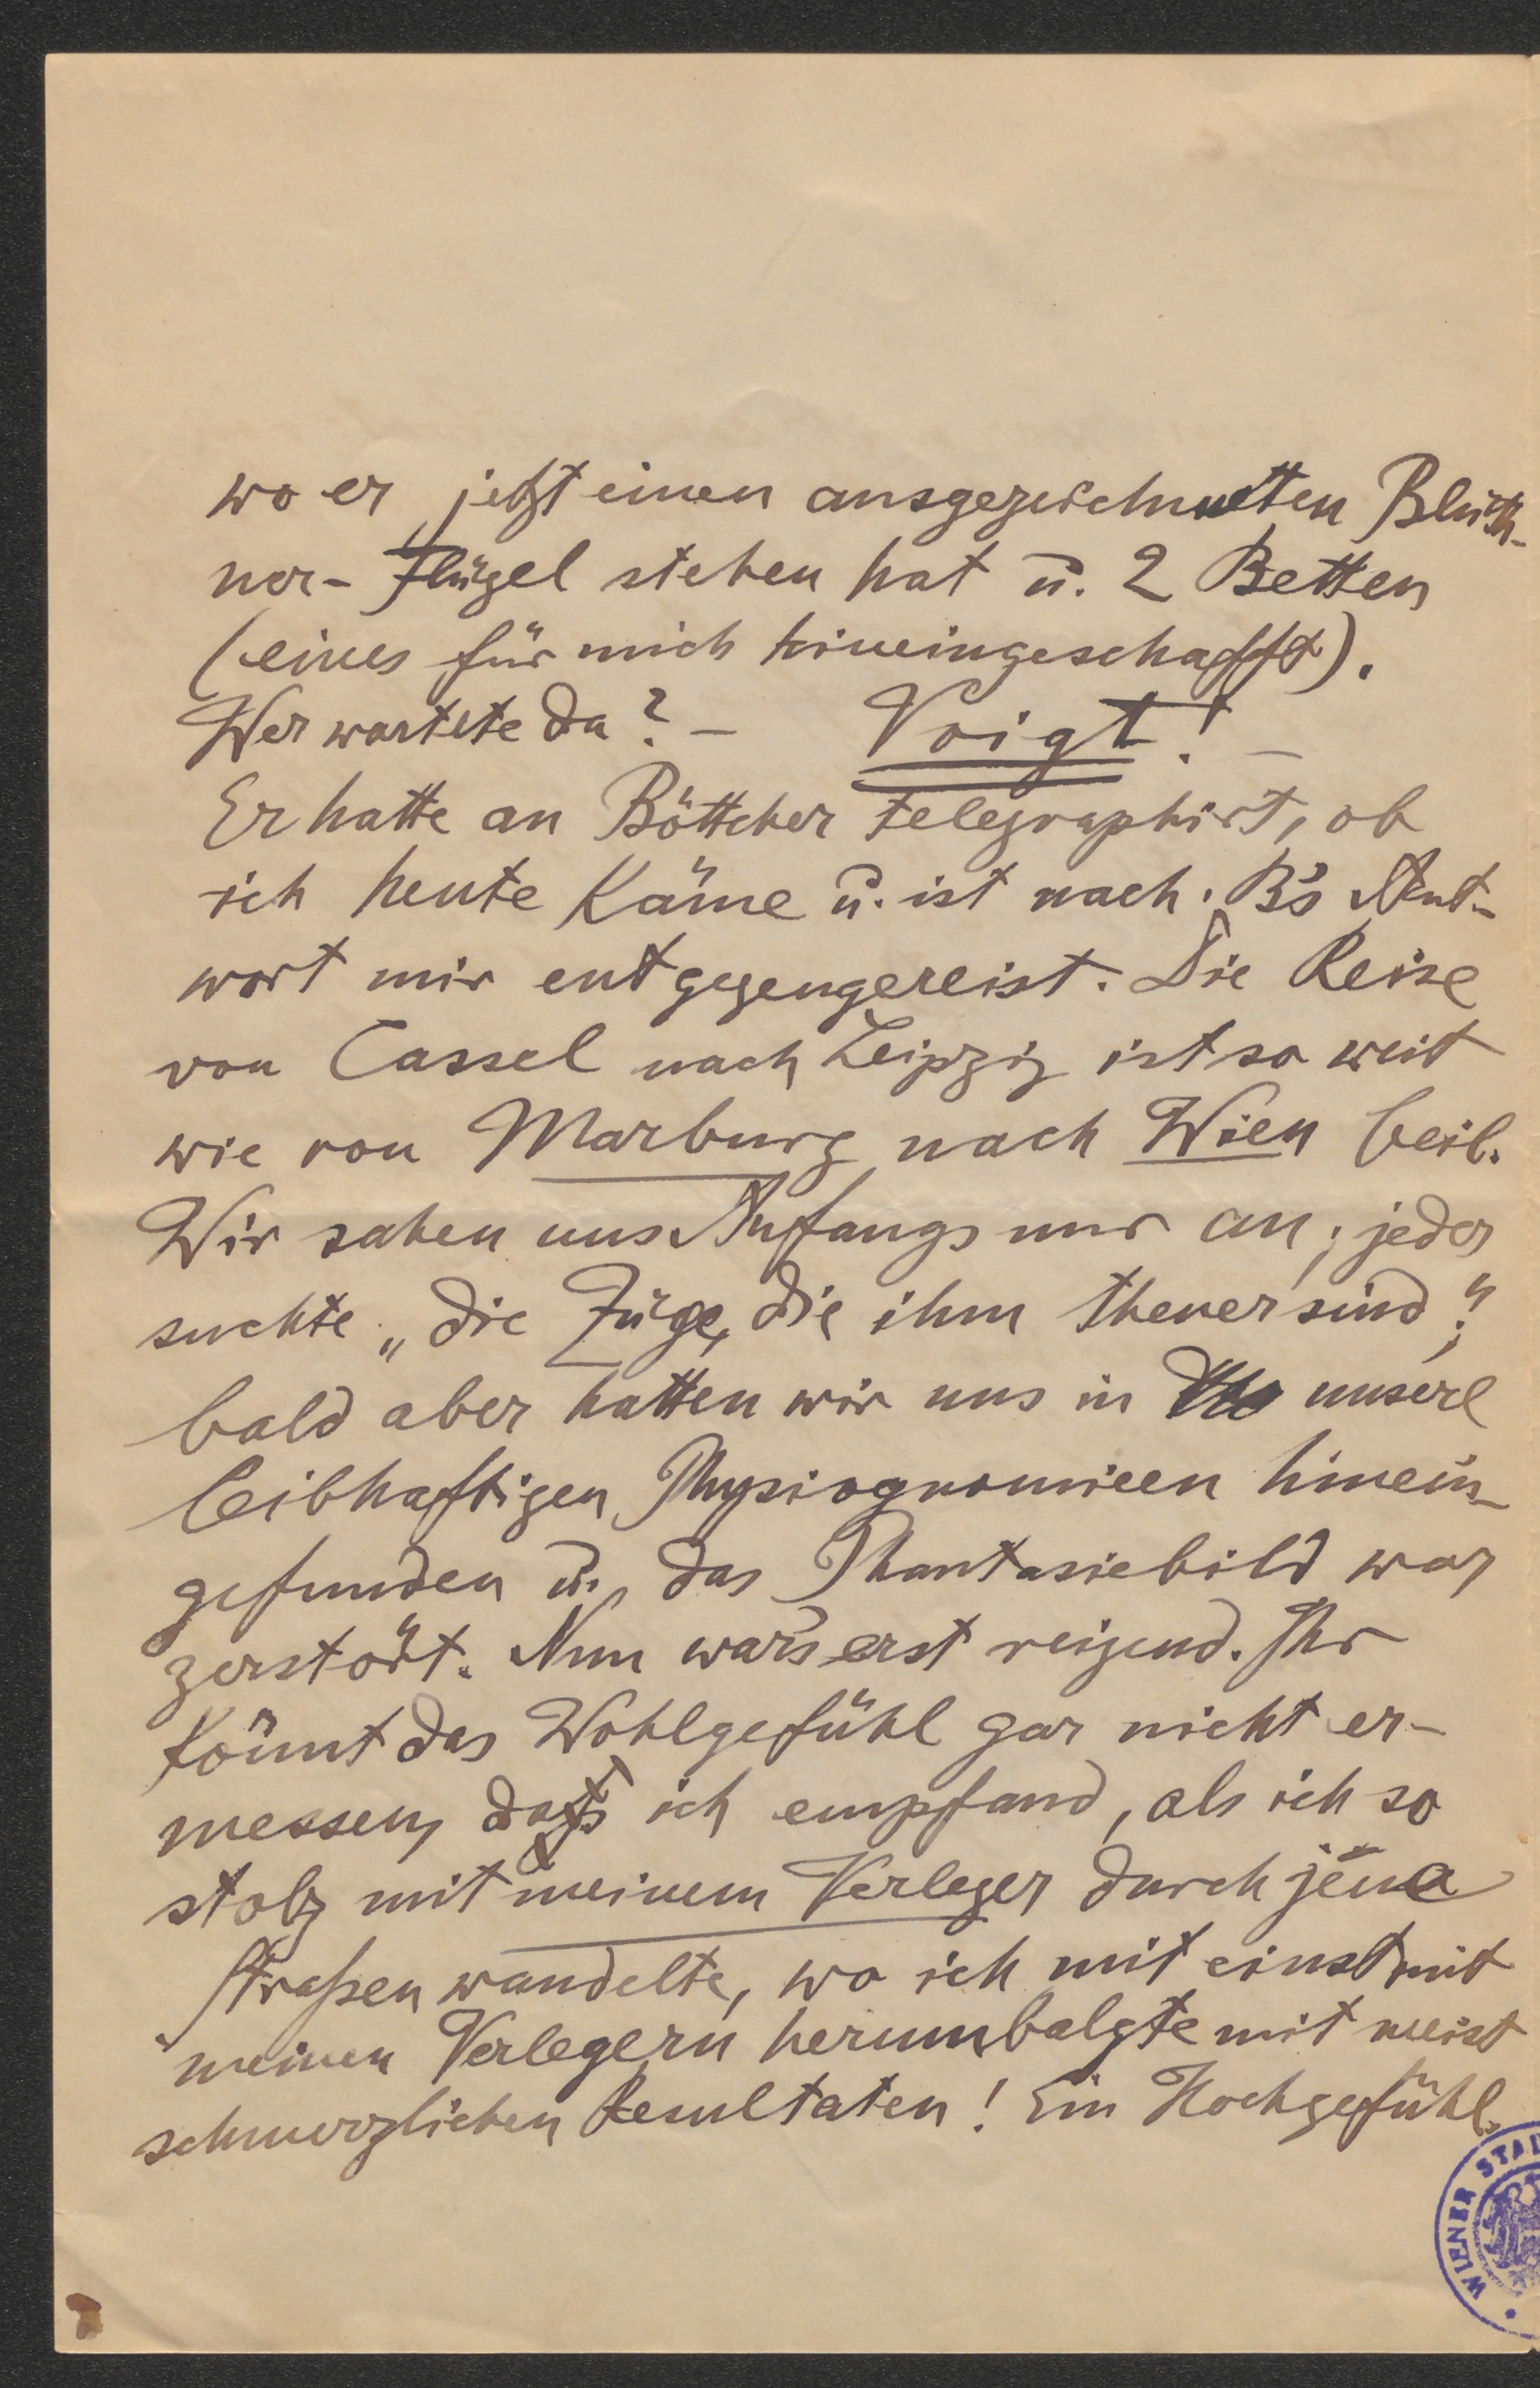 wo er jetzt einen ausgezeichneten Blüth-
ner-Flügel stehen hat u. 2 Betten
(eines für mich hineingeschafft).
Wer wartete da? – Voigt! –
Er hatte an Böttcher telegraphirt, ob
ich heute käme u. ist nach B's Ant-
wort mir entgegengereist. Die Reise
von Cassel nach Leipzig ist so weit
wie von Marburg nach Wien beil.
Wir sahen uns Anfangs nur an; jeder
suchte „die Züge, die ihm theuer sind";
bald aber hatten wir uns in unsere
leibhaftigen Physiognomieen hinein-
gefunden u. das Phantasiebild war
zerstört. Nun war's erst reizend. Ihr
könnt das Wohlgefühl gar nicht er-
messen, das ich empfand, als ich so
stolz mit meinem Verleger durch jene
Straßen wandelte, wo ich mit einst mit
meinen Verlegern herumbalgte mit meist
schmerzlichen Resultaten! Ein Hochgefühl.
WIENER STAD